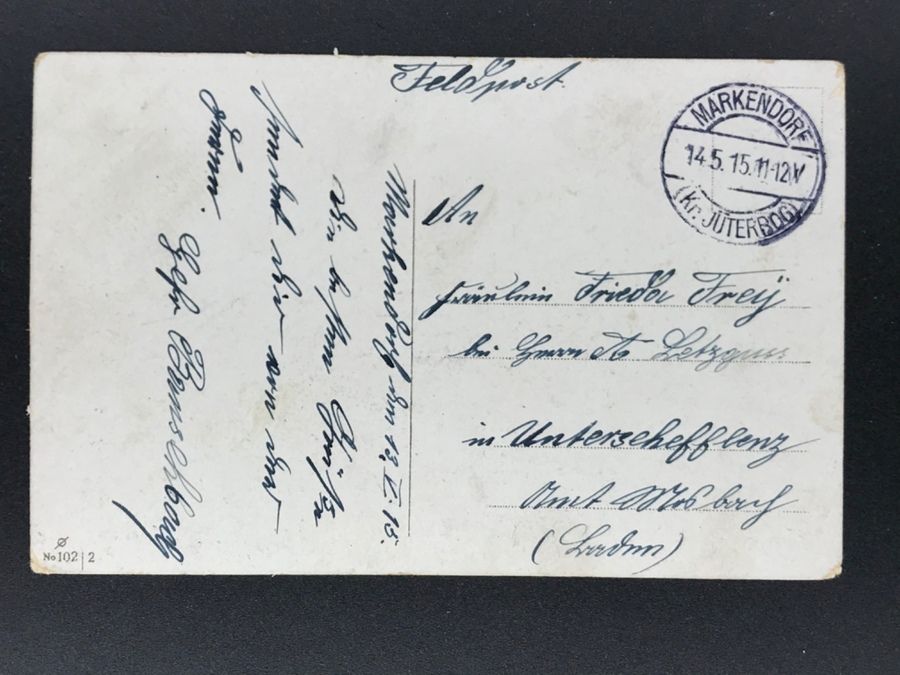 Feldpost.
MARKENDORF
14.5.15.11-12V
(Kr. JÜTERBOG)
An
Fräulein Frieda Freÿ
bei Herrn A Letzgus
in Unterschefflenz
Amt Mosbach
(Baden)
Markendorf den 13.V.15.
Die besten Grüße
sendet dir von der
Gefr
No 102 | 2